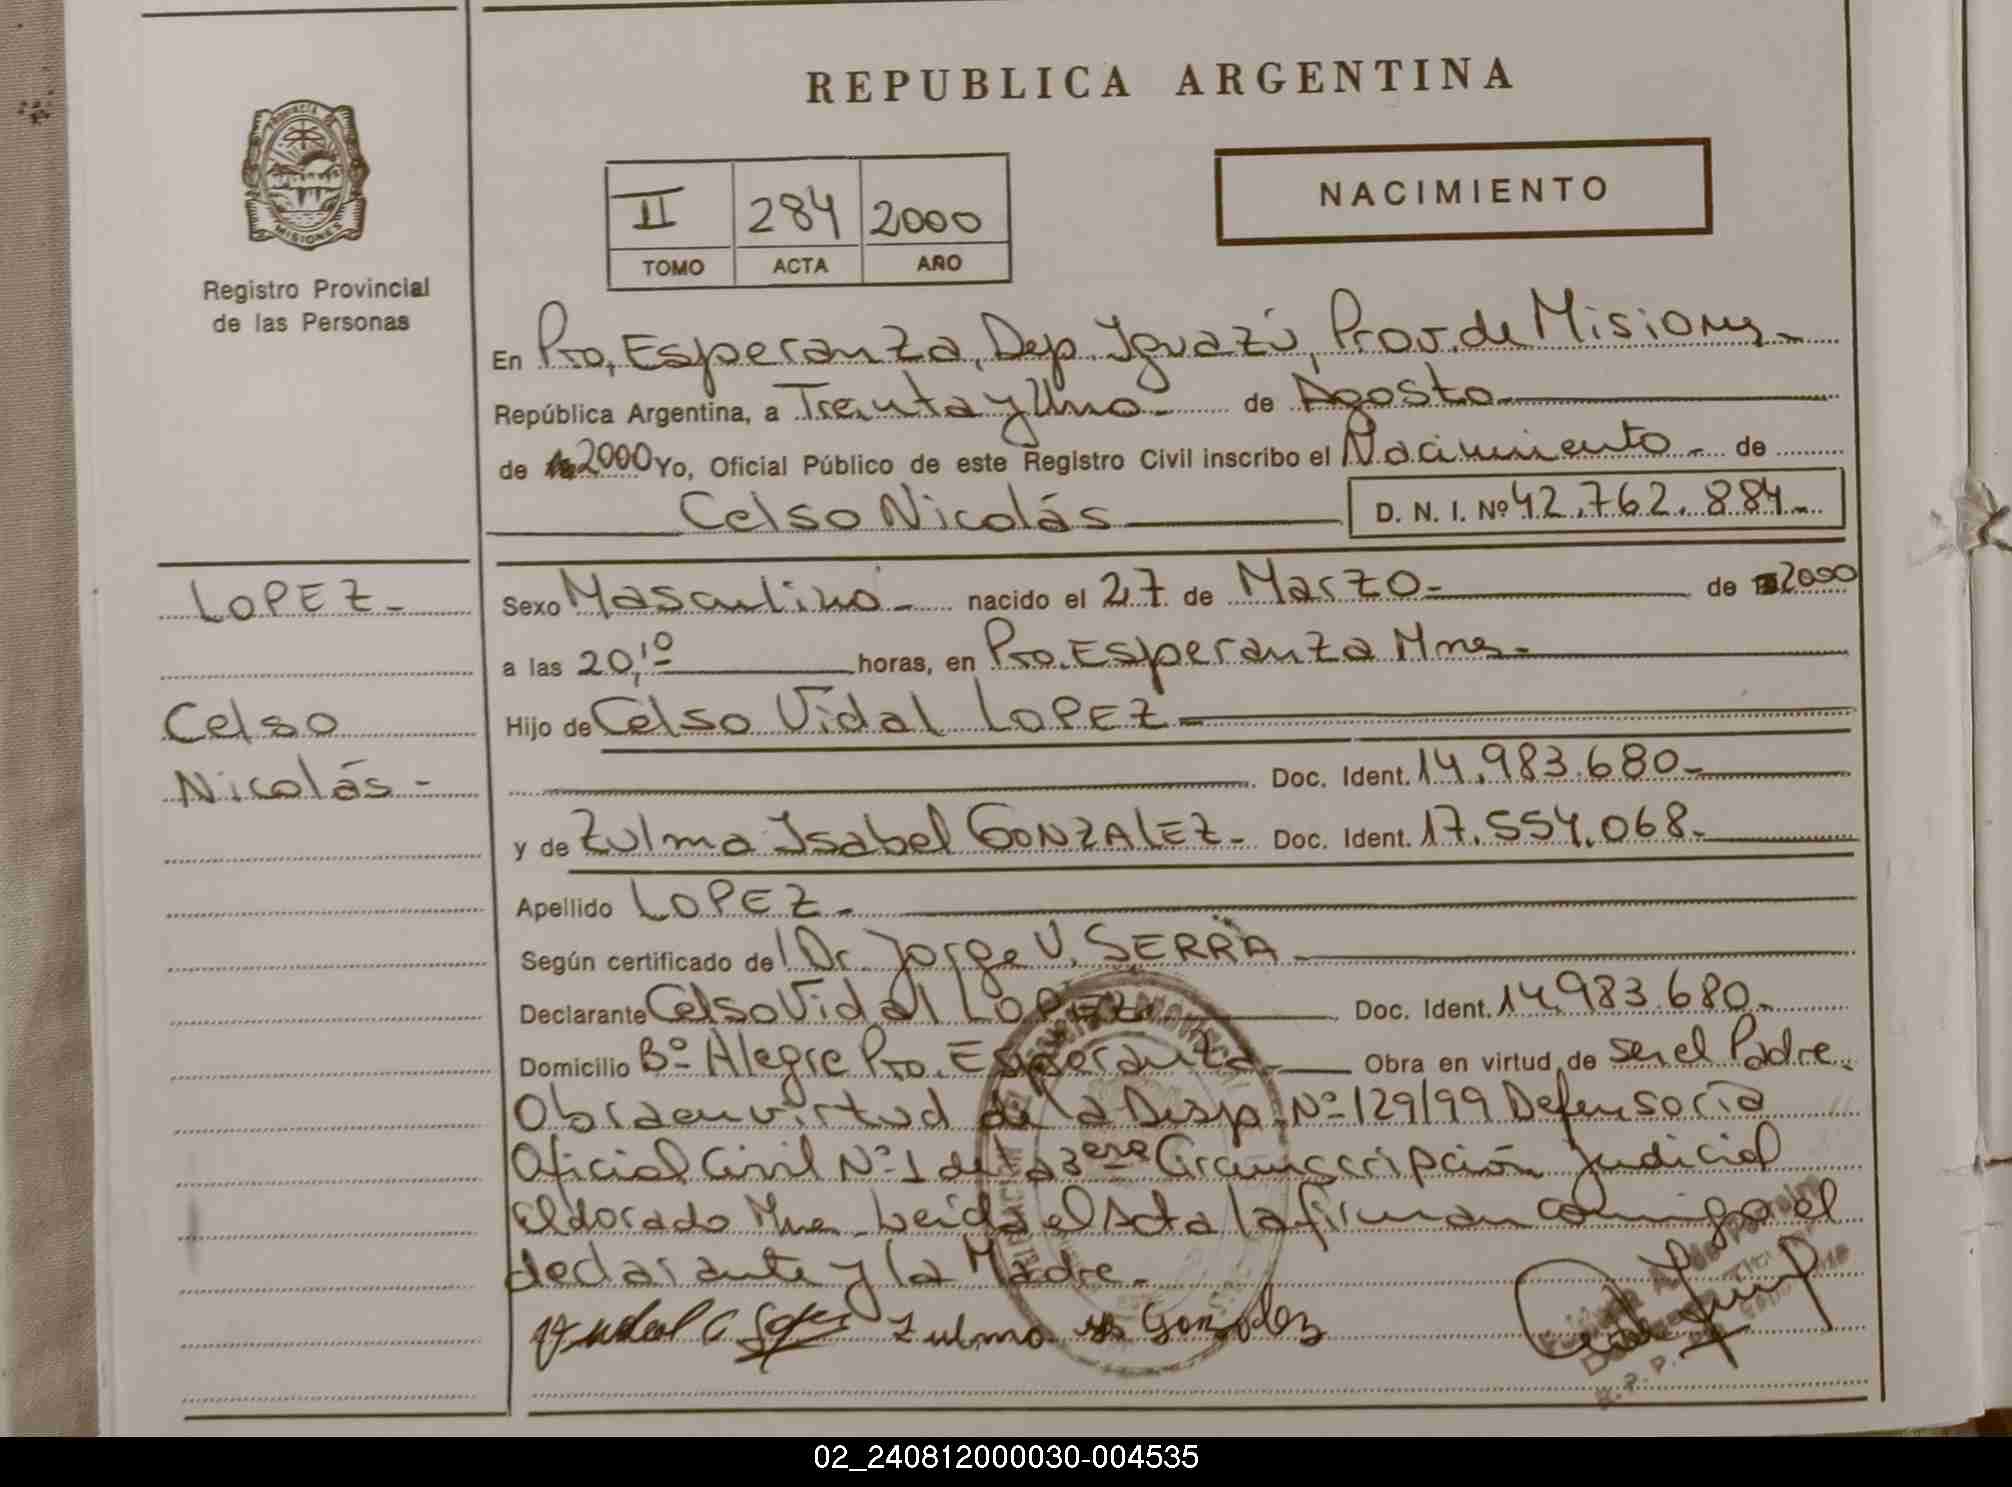 REPUBLICA ARGENTINA
PROVINCIA DE
MISIONES
Registro Provincial
de las Personas
II 284 2000
TOMO ACTA AÑO
NACIMIENTO
En Pto, Esperanza, Dep. Iguazú, Prov. de Misiones
República Argentina, a Treinta y Uno de Agosto
de 2000 Yo, Oficial Público de este Registro Civil inscribo el Nacimiento de
Celso Nicolás D. N. I. Nº 42.762.884
LOPEZ
Celso
Nicolás
Sexo Masculino nacido el 27 de Marzo de 2000
a las 20,10 horas, en Pto. Esperanza Mnes
Hijo de Celso Vidal LOPEZ
Doc. Ident. 14.983.680
y de Zulma Isabel GONZALEZ Doc. Ident. 17.554.068
Apellido LOPEZ
Según certificado del Dr. Jorge V. SERRA
Declarante Celso Vidal LOPEZ Doc. Ident. 14.983.680
Domicilio Bº Alegre Pto. Esperanza Obra en virtud de ser el Padre
Obra en virtud de la Disp. Nº 129/99 Defensoría
Oficial Civil Nº 1 de la 3era Circunscripción Judicial
Eldorado Mnes Leída el Acta la firman conmigo el
declarante y la Madre.
Zulma Gonzalez
02_240812000030-004535